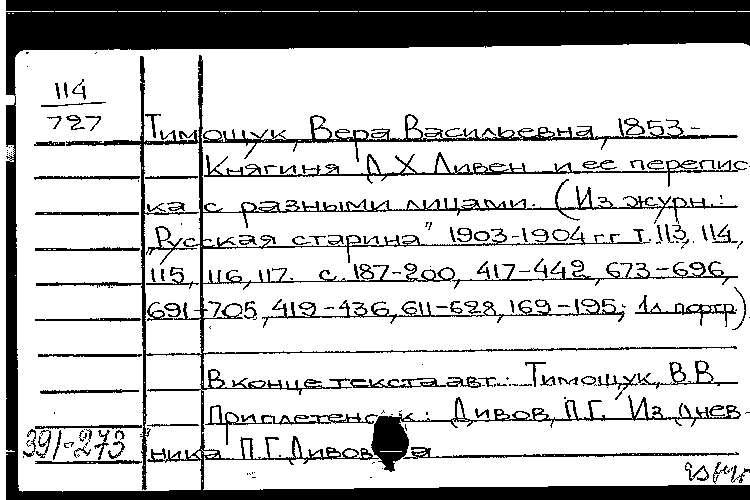 114
727
Тимощук, Вера Васильевна, 1853-
Княгиня Д.Х. Ливен и ее перепис-
ка с разными лицами. (Из журн.:
"Русская старина" 1903-1904 гг. т. 113, 114,
115, 116, 117. с. 187-200, 417-442, 673-696,
691-705, 419-436, 611-628, 169-195; 1л. портр)
В конце текста авт.: Тимощук, В.В.
Приплетено к: Дивов, П.Г. Из днев-
391-273 ника П.Г. Дивова